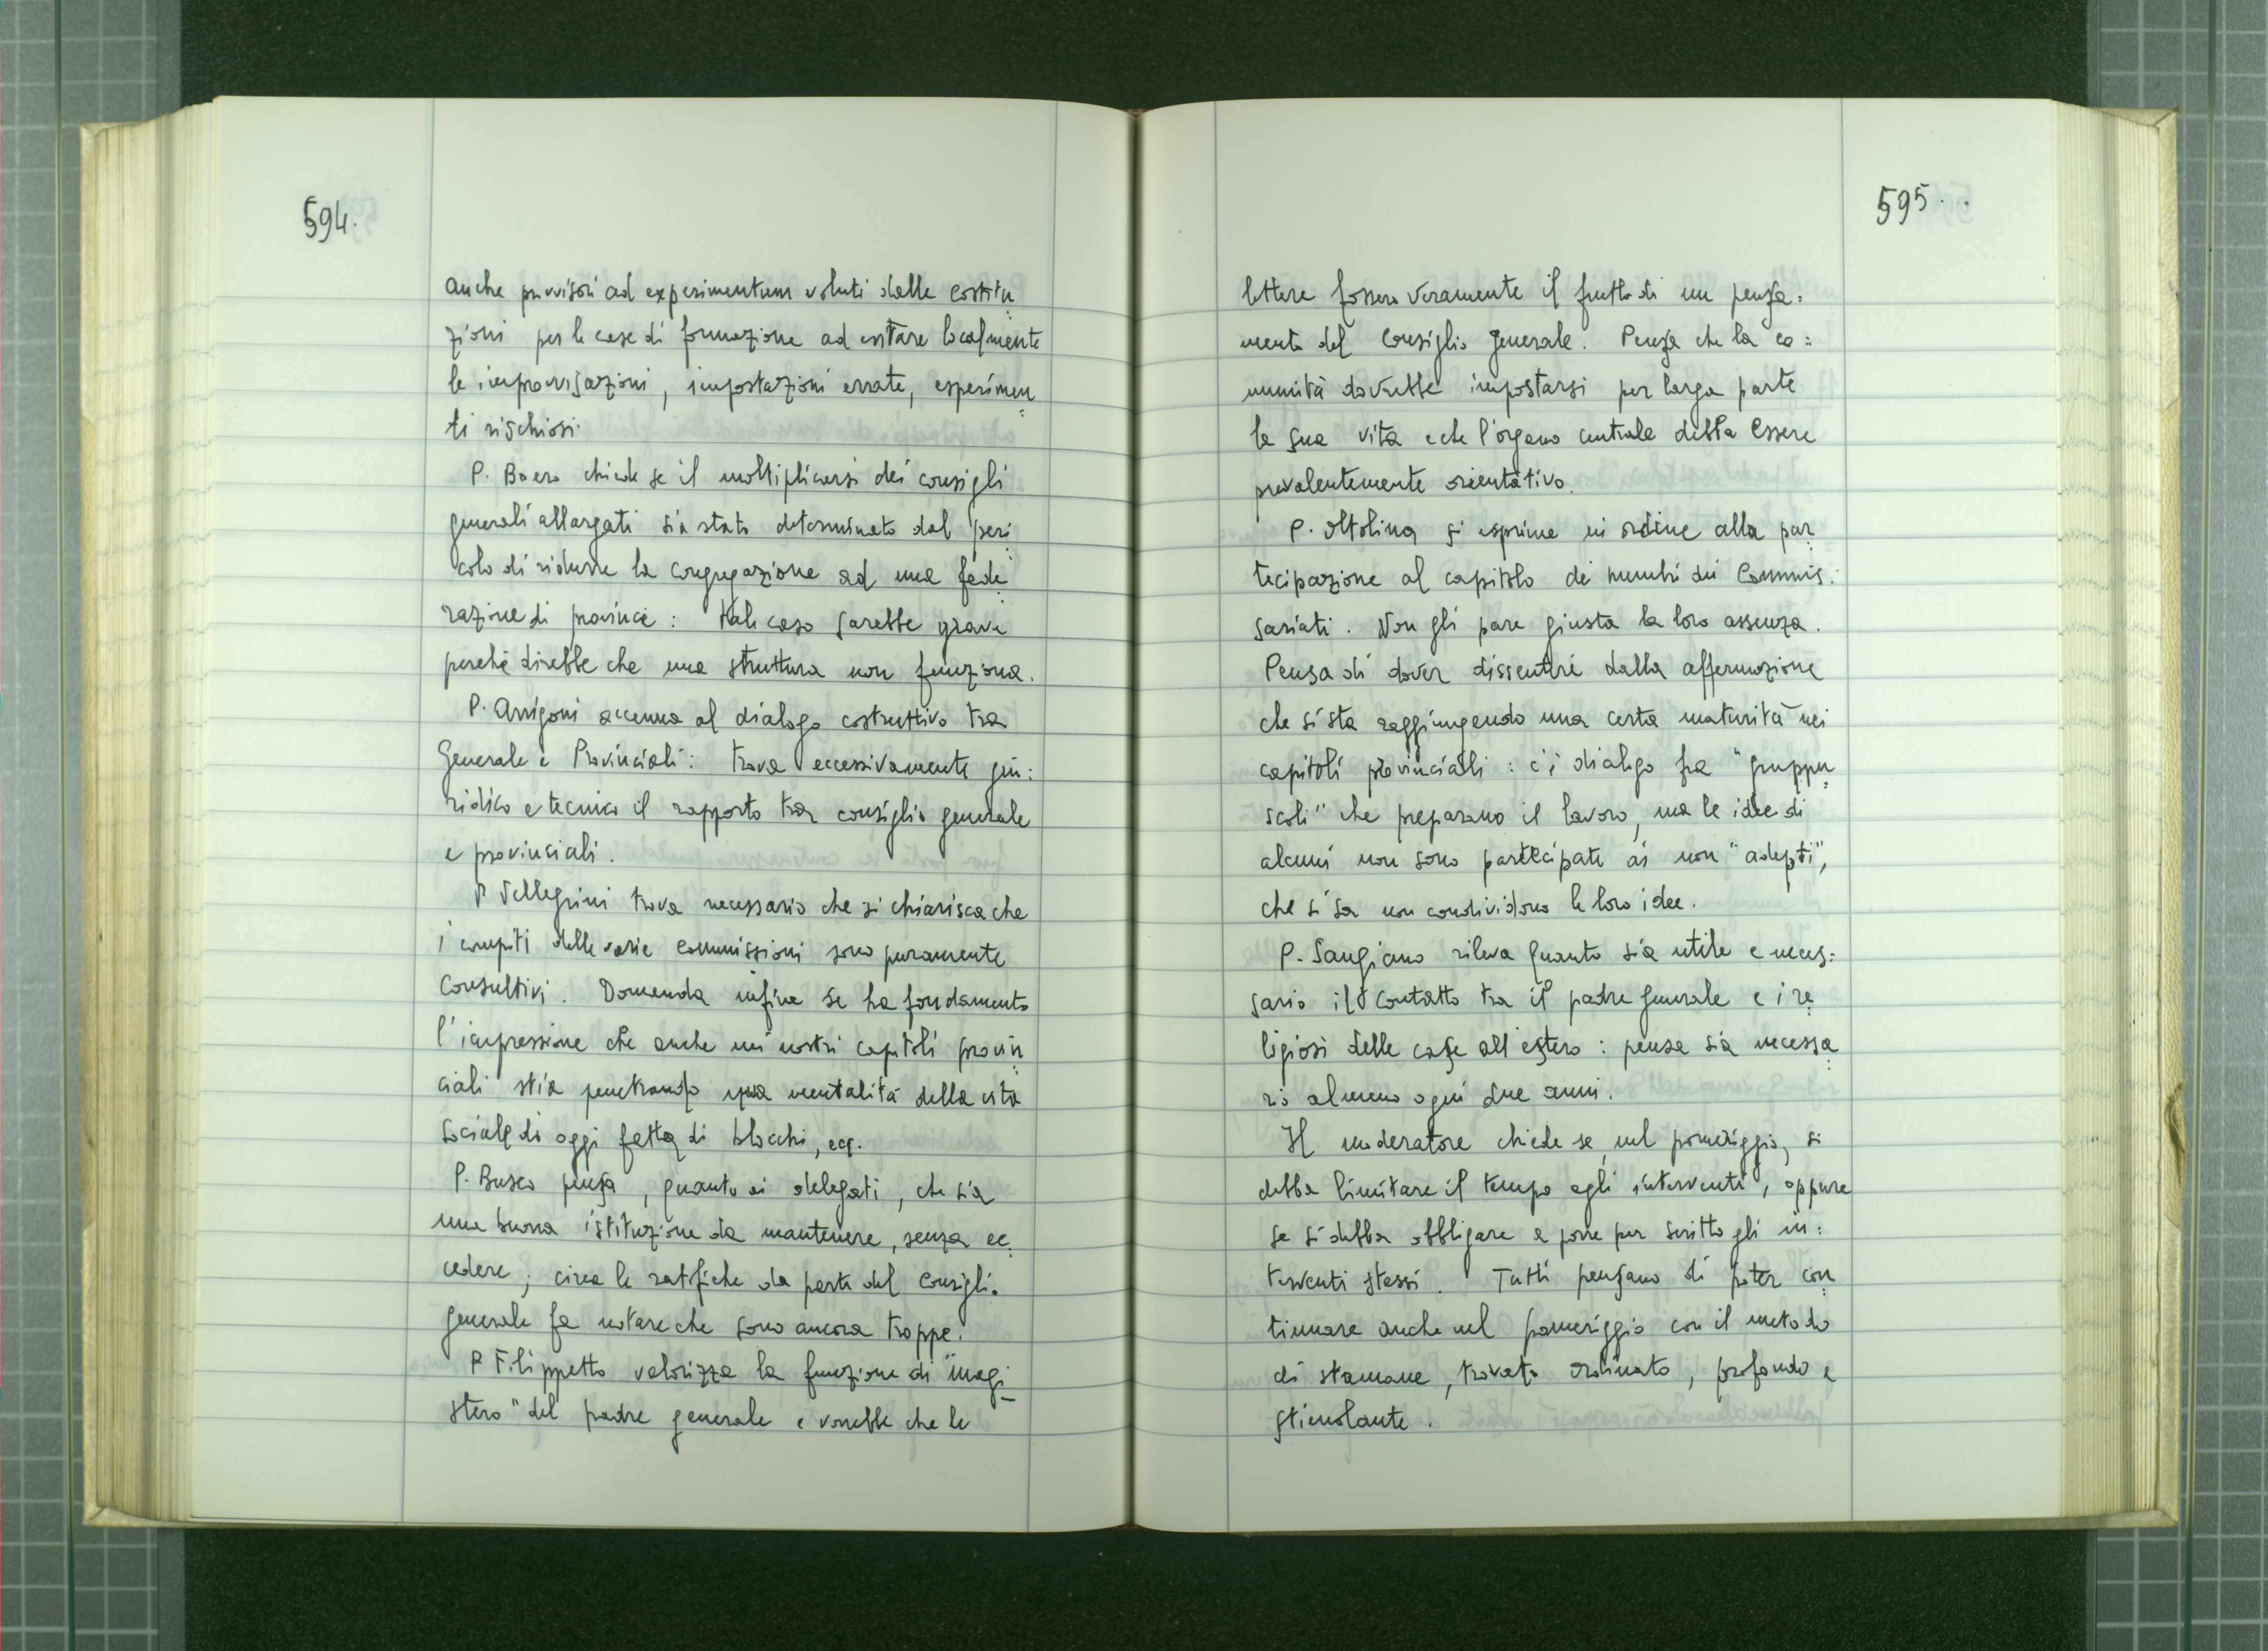 594.
anche provvisori ad experimentum voluti dalle costitu
zioni per le case di formazione ad evitare localmente
le improvvisazioni, impostazioni errate, esperimen
ti rischiosi.
P. Boero chiede se il moltiplicarsi dei consigli
generali allargati sia stato determinato dal peri
colo di ridurre la congregazione ad una fede
razione di provincie : tale caso sarebbe grave
perché direbbe che una struttura non funziona.
P. Arrigoni accenna al dialogo costruttivo tra
Generale e Provinciali : trova eccessivamente giu:
ridico e tecnico il rapporto tra consiglio generale
e provinciali.
P Pellegrini trova necessario che si chiarisca che
i compiti delle varie commissioni sono puramente
consultivi. Domanda infine se ha fondamento
l'impressione che anche nei nostri capitoli provin
ciali stia penetrando una mentalità della vita
sociale di oggi fatta di blocchi, ecc.
P. Busco pensa, quanto ai delegati, che sia
una buona istituzione da mantenere, senza ec
cedere ; circa le ratifiche da parte del Consiglio
generale fa notare che sono ancora troppe.
P Filippetto valorizza la funzione di "magi
stero" del padre generale e vorrebbe che le
595.
lettere fossero veramente il frutto di un pensa:
mento del Consiglio generale. Pensa che la co:
munità dovrebbe impostarsi per larga parte
la sua vita e che l'organo centrale debba essere
prevalentemente orientativo.
P. Oltolina si esprime in ordine alla par
tecipazione al capitolo dei membri dei Commis:
sariati. Non gli pare giusta la loro assenza.
Pensa di dover dissentire dalla affermazione
che si sta raggiungendo una certa maturità nei
capitoli provinciali : c'è dialogo fra "gruppu
scoli" che preparano il lavoro, ma le idee di
alcuni non sono partecipate ai non "adepti",
che si sa non condividono le loro idee.
P. Sangiano rileva quanto sia utile e neces:
sario il contatto tra il padre generale e i re
ligiosi delle case all'estero : pensa sia necessa
rio almeno ogni due anni.
Il moderatore chiede se, nel pomeriggio, si
debba limitare il tempo agli interventi, oppure
se si debba obbligare a porre per scritto gli in:
terventi stessi. Tutti pensano di poter con
tinuare anche nel pomeriggio con il metodo
di stamane, trovato ordinato, profondo e
stimolante.